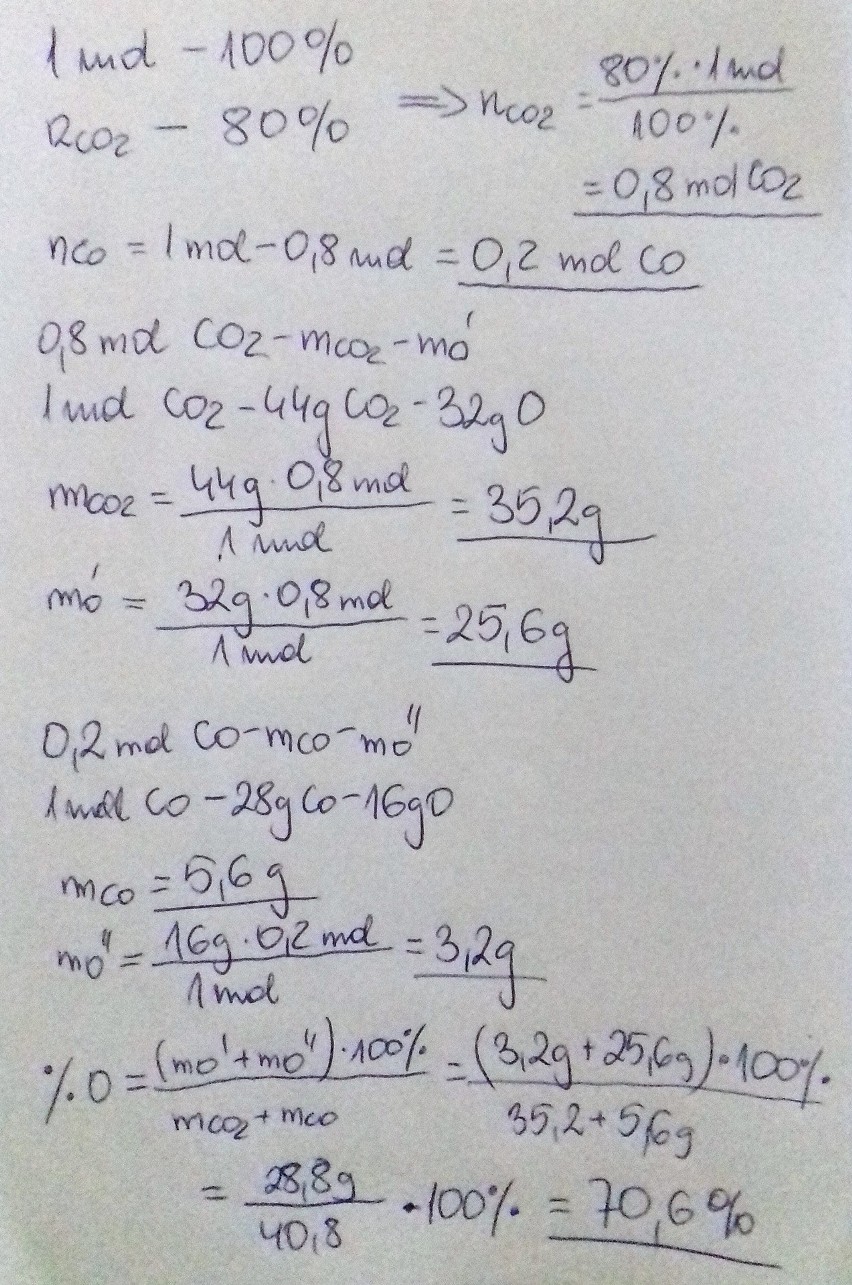 1 mol - 100%
nCO2 - 80% => nCO2 = 80% · 1 mol / 100%
= 0,8 mol CO2
nCO = 1 mol - 0,8 mol = 0,2 mol CO
0,8 mol CO2 - mCO2 - mO'
1 mol CO2 - 44g CO2 - 32g O
mCO2 = 44g · 0,8 mol / 1 mol = 35,2g
mO' = 32g · 0,8 mol / 1 mol = 25,6g
0,2 mol CO - mCO - mO"
1 mol CO - 28g CO - 16g O
mCO = 5,6 g
mO" = 16g · 0,2 mol / 1 mol = 3,2g
% O = (mO' + mO") · 100% / mCO2 + mCO = (3,2g + 25,6g) · 100% / 35,2 + 5,6g
= 28,8g / 40,8 · 100% = 70,6%